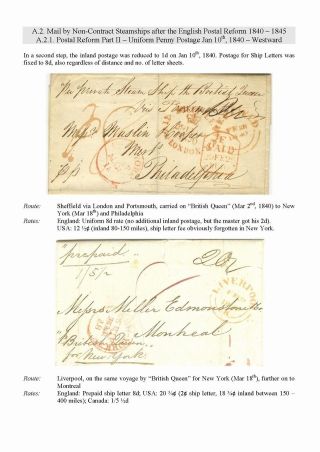 A.2. Mail by Non-Contract Steamships after the English Postal Reform 1840 – 1845
A.2.1. Postal Reform Part II – Uniform Penny Postage Jan 10th, 1840 – Westward
In a second step, the inland postage was reduced to 1d on Jan 10th, 1840. Postage for Ship Letters was
fixed to 8d, also regardless of distance and no. of letter sheets.
Per private Steam Ship the British Queen
Messrs Maslin Cooper
LONDON
PAID
Philadelphia
Route: Sheffield via London and Portsmouth, carried on “British Queen” (Mar 2nd, 1840) to New
York (Mar 18th) and Philadelphia
Rates: England: Uniform 8d rate (no additional inland postage, but the master got his 2d).
USA: 12 ½¢ (inland 80-150 miles), ship letter fee obviously forgotten in New York.
"prepaid"
1/5/2
LIVERPOOL
Messrs Miller Edmonstone &Co
Montreal
"British Queen"
for New York
Route: Liverpool, on the same voyage by “British Queen” for New York (Mar 18th), further on to
Montreal
Rates: England: Prepaid ship letter 8d; USA: 20 ¾¢ (2¢ ship letter, 18 ¾¢ inland between 150 –
400 miles); Canada: 1/5 ½d